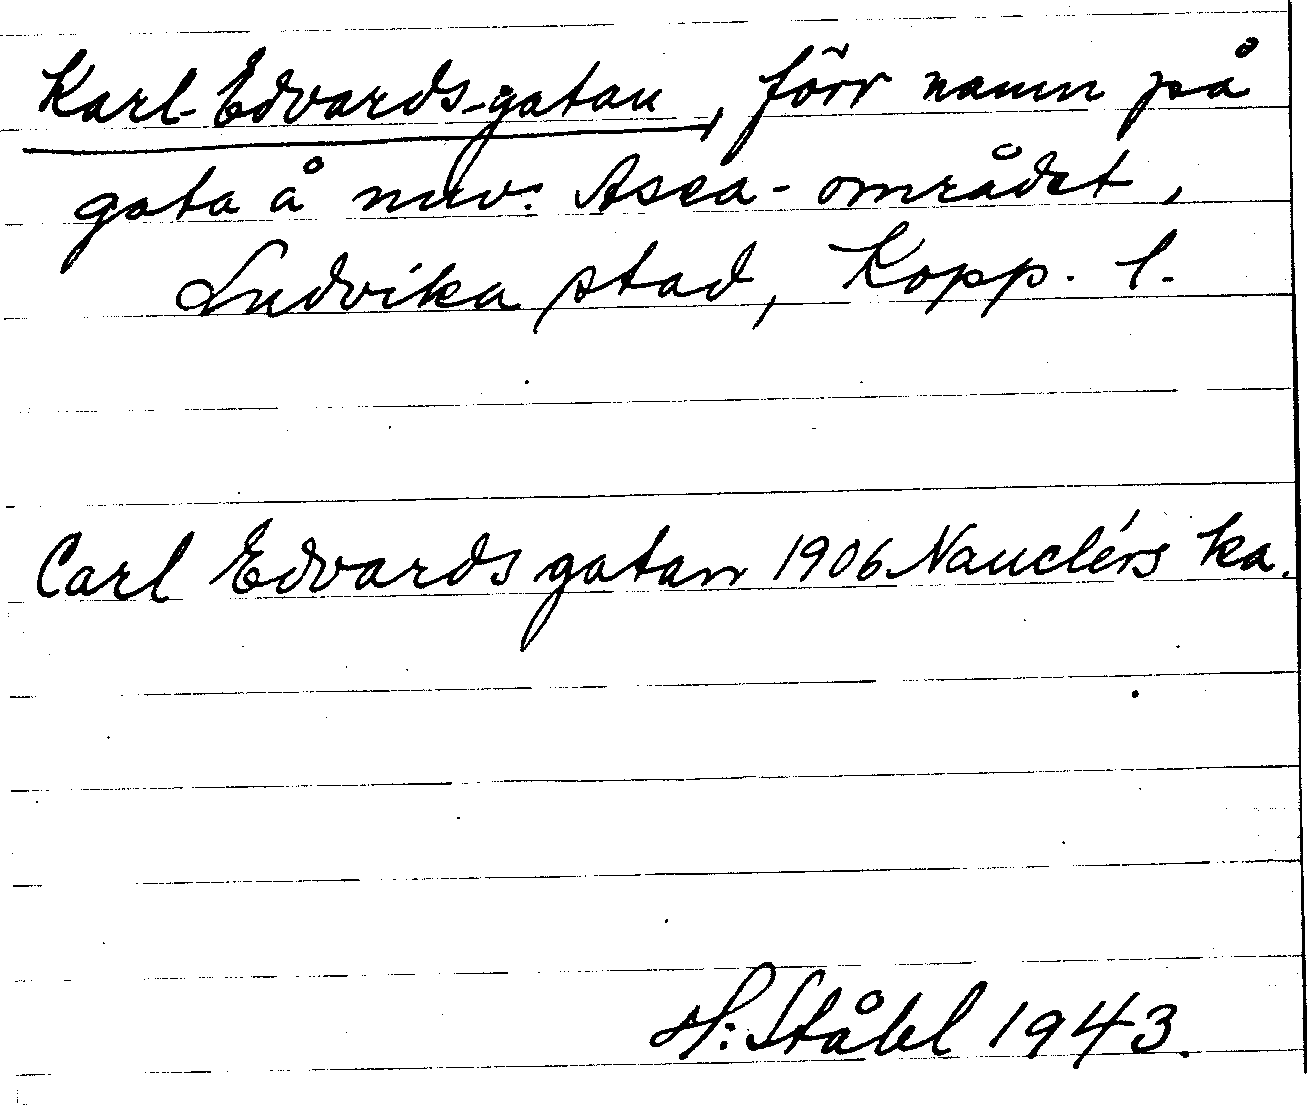 Karl-Edvards-gatan, förr namn på
gata å nuv. Asea-området,
Ludvika stad, Kopp. l.
Carl Edvards gatan 1906 Nauclérs ka.
H. Ståhl 1943.